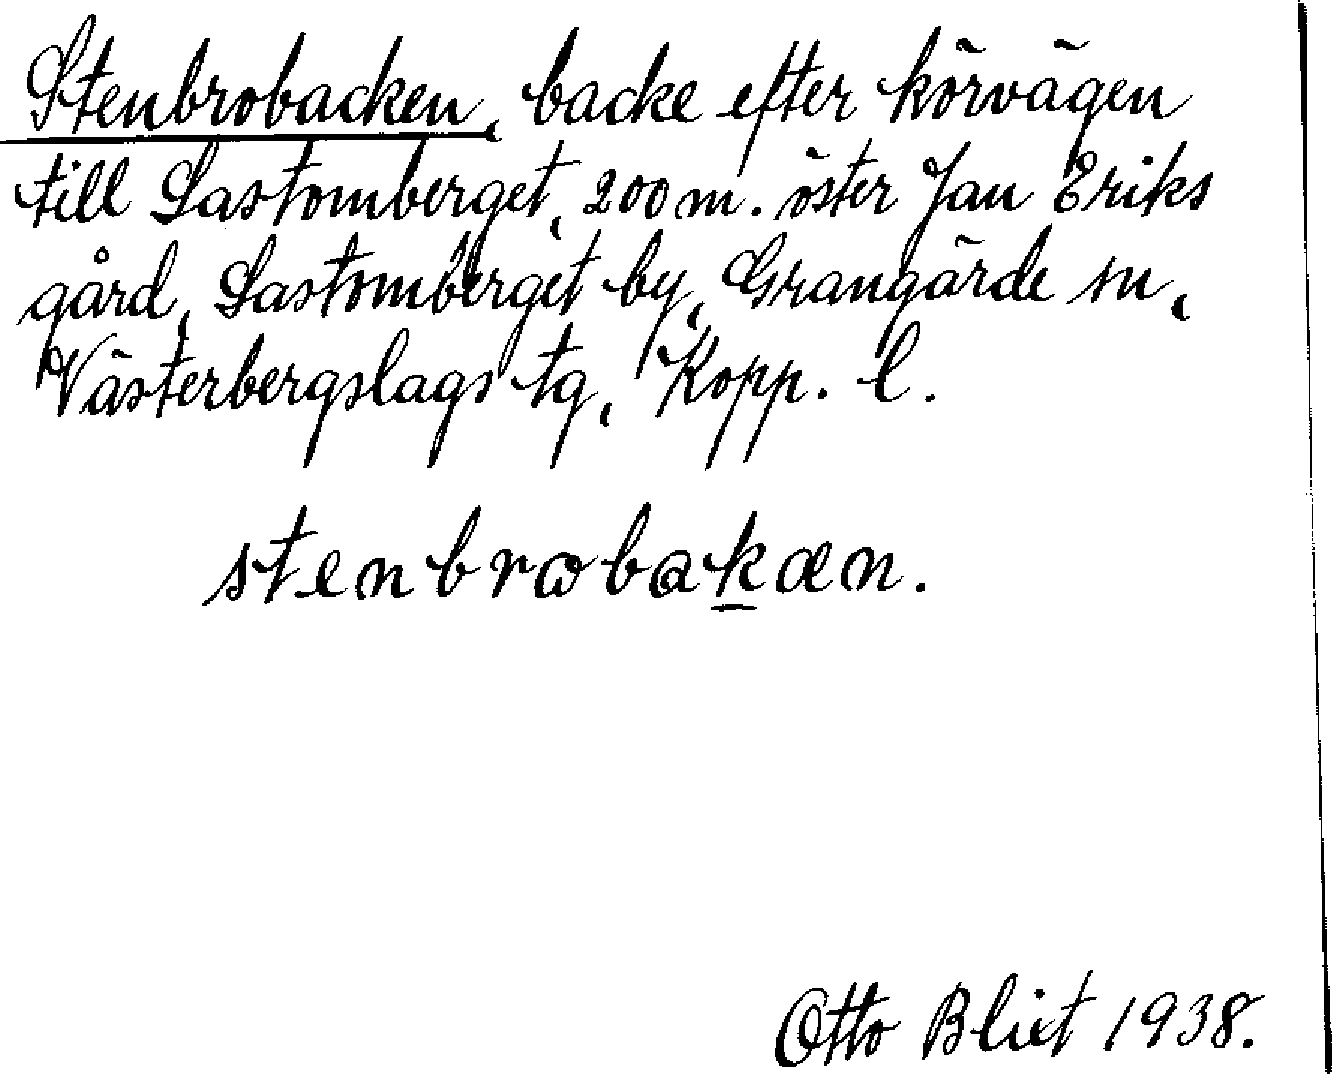 Stenbrobacken, backe efter körvägen
till Lastomberget, 200 m. öster Jan Eriks
gård, Lastomberget by, Grangärde sn,
Västerbergslags tg, Kopp. l.
stenbrωbakæn.
Otto Blixt 1938.